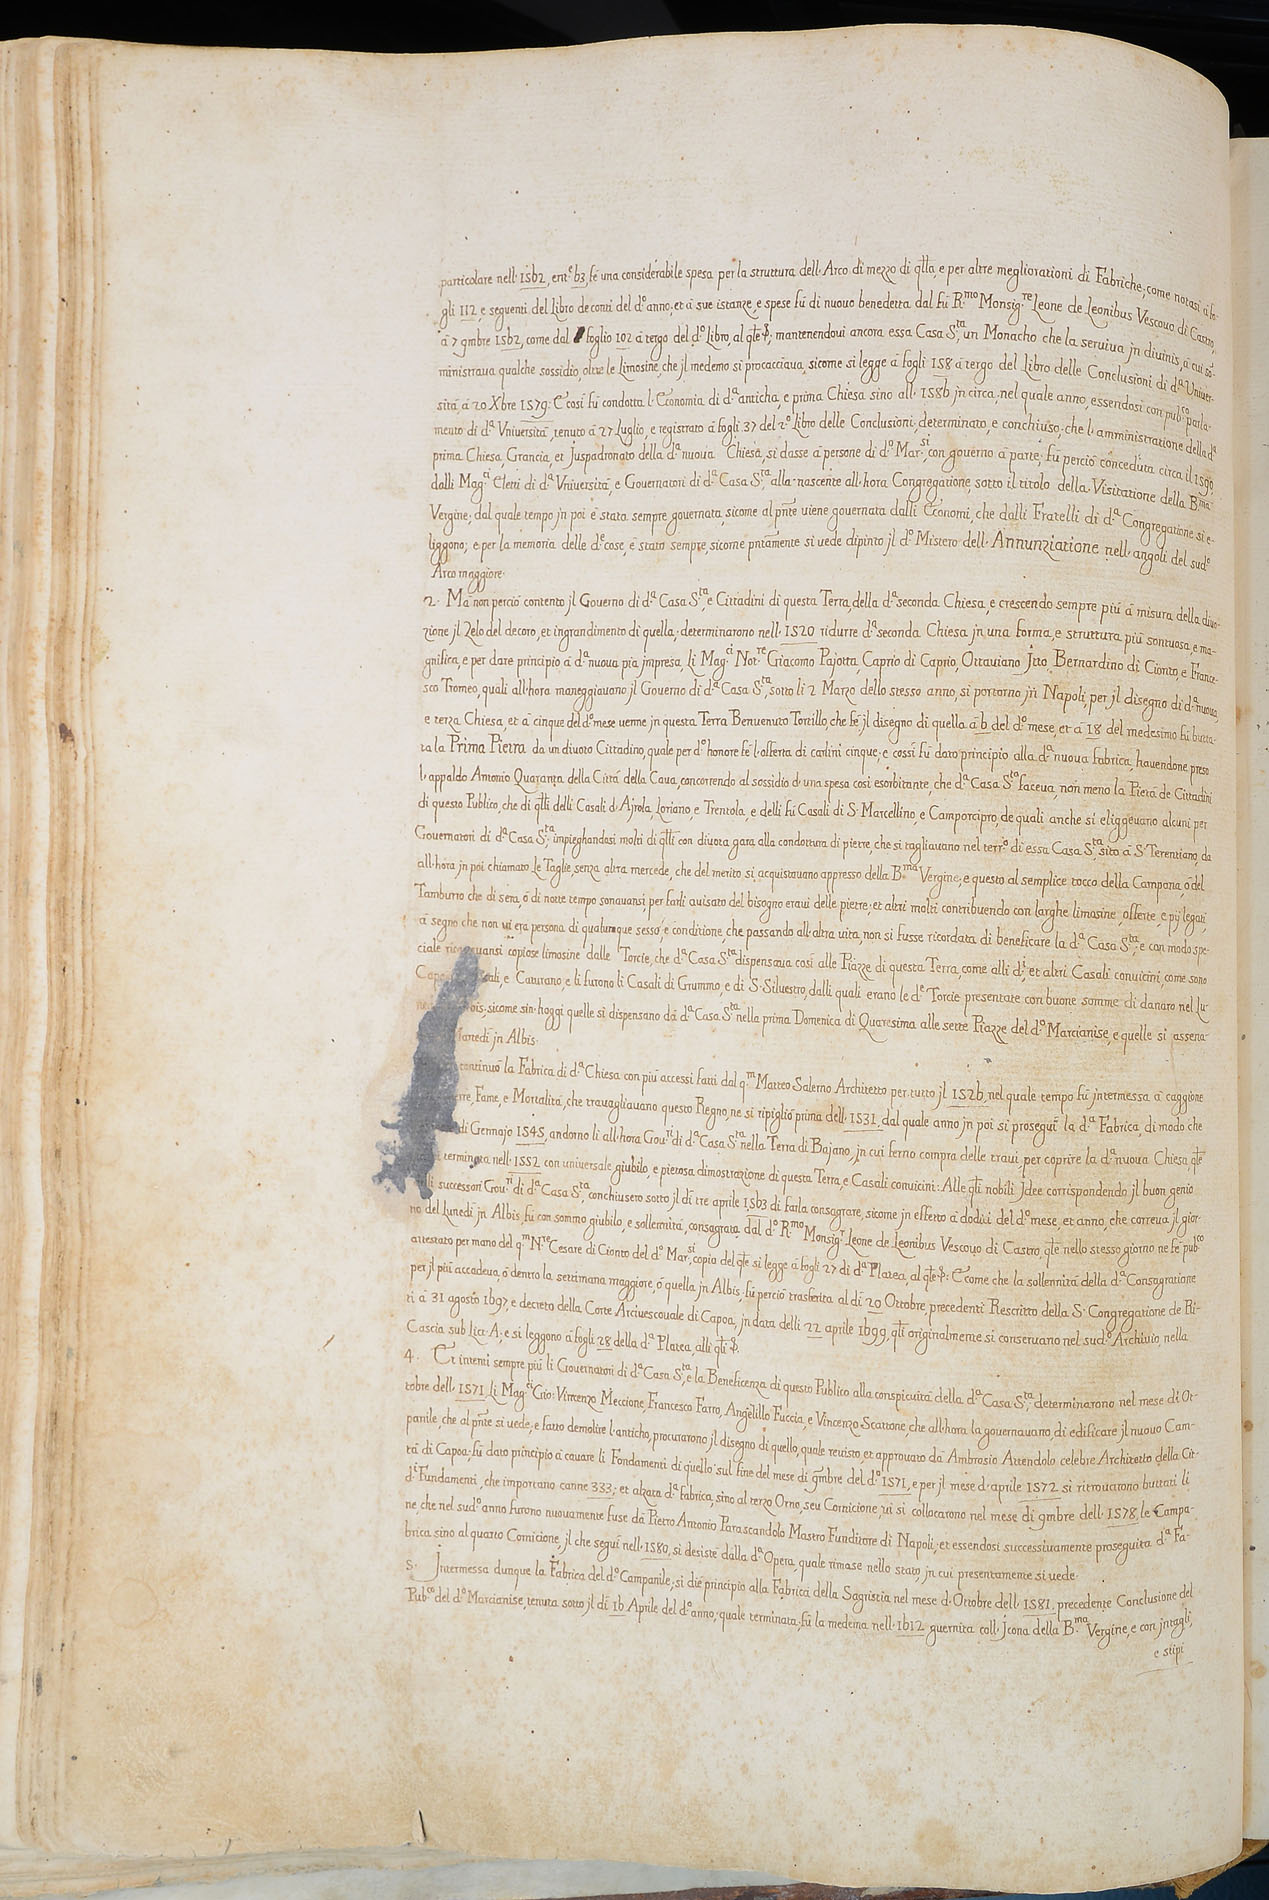 particolare nell. 1562, ent.e 63, fè una considerabile spesa per la struttura dell'Arco di mezzo di q̃lla, e per altre megliorationi di Fabriche, come notasi à fo-
gli 112, e seguenti del Libro de conti del d.o anno, et à sue istanze, e spese fù di nuouo benedetta dal fù R.mo Monsig.re Leone de Leonibus Vescouo di Castro,
à 7 9mbre 1562, come dal foglio 102 à tergo del d.o Libro, al q̃le ℞; mantenendoui ancora essa Casa S.ta un Monacho che la seruiua jn diuinis, à cui som-
ministraua qualche sossidio, oltre le Limosine, che jl medemo si procacciaua, sicome si legge à fogli 158 à tergo del Libro delle Conclusioni di d.a Vniuer-
sità, à 20 Xbre 1579: E così fù condotta l'Economia di d.a anticha, e prima Chiesa sino all. 1586 jn circa, nel quale anno, essendosi con pub.co parla-
mento di d.a Vniuersità, tenuto à 27 Luglio, e registrato à fogli 37 del 2.o Libro delle Conclusioni, determinato, e conchiuso, che l'amministratione della d.a
prima Chiesa, Grancia, et Juspadronato della d.a nuoua Chiesa, si dasse à persone di d.o Mar.si, con gouerno à parte; fù perciò conceduta circa il 1590,
dalli Mag.ci Eletti di d.a Vniuersità, e Gouernatori di d.a Casa S.ta, alla nascente all'hora Congregatione, sotto il titolo della Visitatione della B.ma
Vergine; dal quale tempo jn poi è stata sempre gouernata, sicome al pn̄te uiene gouernata dalli Economi, che dalli Fratelli di d.a Congregatione si e-
liggono; e per la memoria delle d.e cose, è stato sempre, sicome pn̄tam̄ente si uede dipinto jl d.o Mistero dell'Annunziatione nell'angoli del sud.o
Arco maggiore.
2. Mà non perciò contento jl Gouerno di d.a Casa S.ta, e Cittadini di questa Terra, della d.a seconda Chiesa, e crescendo sempre più à misura della diuo-
zione jl Zelo del decoro, et ingrandimento di quella, determinarono nell. 1520 ridurre d.a seconda Chiesa jn una forma, e struttura più sontuosa, e ma-
gnifica, e per dare principio à d.a nuoua pia jmpresa, li Mag.ci Not.re Giacomo Pajotta, Caprio di Caprio, Ottauiano Jtto, Bernardino di Cionto, e France-
sco Tromeo, quali all'hora maneggiauano jl Gouerno di d.a Casa S.ta, sotto li 2 Marzo dello stesso anno, si portorno jn Napoli, per jl disegno di d.a nuoua,
e terza Chiesa, et à cinque del d.o mese uenne jn questa Terra Benuenuto Tortillo, che fè jl disegno di quella à 6 del d.o mese, et à 18 del medesimo fù butta-
ta la Prima Pietra da un diuoto Cittadino, quale per d.o honore fè l'offerta di carlini cinque; e cossì fù dato principio alla d.a nuoua fabrica, hauendone preso
l'appaldo Antonio Quaranta della Città della Caua, concorrendo al sossidio d'una spesa così esorbitante, che d.a Casa S.ta faceua, non meno la Pietà de Cittadini
di questo Publico, che di q̃lli delli Casali d'Ajrola, Loriano, e Trentola, e delli fù Casali di S. Marcellino, e Camporcipro, de quali anche si eliggeuano alcuni per
Gouernatori di d.a Casa S.ta, impieghandosi molti di q̃lli con diuota gara alla condottura di pietre, che si tagliauano nel terr.o di essa Casa S.ta, sito à S. Terentiano, da
all'hora jn poi chiamato Le Taglie, senza altra mercede, che del merito si acquistauano appresso della B.ma Vergine, e questo al semplice tocco della Campana, ò del
Tamburro che di sera, ò di notte tempo sonauansi, per farli auisato del bisogno eraui delle pietre; et altri molti contribuendo con larghe limosine, offerte, e pij legati,
à segno che non ui era persona di qualunque sesso, e conditione, che passando all'altra uita, non si fusse ricordata di beneficare la d.a Casa S.ta, e con modo spe-
ciale copiose limosine dalle Torcie, che d.a Casa S.ta dispensaua così alle Piazze di questa Terra, come alli d.i, et altri Casali conuicini, come sono
e Caturano, e li furono li Casali di Grummo, e di S. Siluestro, dalli quali erano le d.e Torcie presentate con buone somme di danaro nel Lu-
sicome sin'hoggi quelle si dispensano dà d.a Casa S.ta nella prima Domenica di Quaresima alle sette Piazze del d.o Marcianise, e quelle si assena-
Martedì jn Albis.
continuò la Fabrica di d.a Chiesa con più accessi fatti dal q.m Matteo Salerno Architetto per tutto jl 1526, nel quale tempo fù jntermessa à caggione
Fame, e Mortalità, che trauagliauano questo Regno, ne si ripigliò prima dell. 1531, dal quale anno jn poi si proseguì la d.a Fabrica, di modo che
di Gennajo 1545, andorno li all'hora Gou.ri di d.a Casa S.ta nella Terra di Bajano, jn cui ferno compra delle traui, per coprire la d.a nuoua Chiesa, q̃le
terminata nell. 1552 con uniuersale giubilo, e pietosa dimostrazione di questa Terra, e Casali conuicini: Alle q̃li nobili Jdee corrispondendo jl buon genio
successori Gou.ri di d.a Casa S.ta, conchiusero sotto jl dì tre aprile 1563 di farla consagrare, sicome jn effetto à dodici del d.o mese, et anno, che correua jl gior-
no del Lunedì jn Albis, fù con sommo giubilo, e sollennità, consagrata dal d.o R.mo Monsig.r Leone de Leonibus Vescouo di Castro, q̃le nello stesso giorno ne fè pub.co
attestato per mano del q.m N.re Cesare di Cionto del d.o Mar.si, copia del q̃le si legge à fogli 27 di d.a Platea, al q̃le ℞: E come che la sollennità della d.a Consagratione
per jl più accadeua, ò dentro la settimana maggiore, ò quella jn Albis, fù perciò trasferita al dì 20 Ottobre, precedenti Rescritto della S. Congregatione de Ri-
ti à 31 agosto 1697, e decreto della Corte Arciuescouale di Capoa, jn data delli 22 aprile 1699, q̃li originalmente si conseruano nel sud.o Archiuio, nella
Cascia sub Litt. A; e si leggono à fogli 28 della d.a Platea, alli q̃li ℞.
4. Et intenti sempre più li Gouernatori di d.a Casa S.ta, e la Beneficenza di questo Publico alla conspicuità della d.a Casa S.ta, determinarono nel mese di Ot-
tobre dell. 1571, li Mag.ci Gio: Vincenzo Meccione, Francesco Farro, Angelillo Fuccia, e Vincenzo Scattone, che all'hora la gouernauano, di edificare jl nuouo Cam-
panile, che al pn̄te si uede, e fatto demolire l'anticho, procurarono jl disegno di quello, quale reuisto, et approuato dà Ambrosio Attendolo celebre Architetto della Cit-
tà di Capoa, fù dato principio à cauare li Fondamenti di quello sul fine del mese di 9mbre del d.o 1571, e per jl mese d'aprile 1572 si ritrouarono buttati li
d.i Fundamenti, che importano canne 333; et alzata d.a fabrica, sino al terzo Orno, seu Cornicione, ui si collacarono nel mese di 9mbre dell. 1578, le Campa-
ne, che nel sud.o anno furono nuouamente fuse dà Pietro Antonio Parascandolo Mastro Funditore di Napoli; et essendosi successiuamente proseguita d.a Fa-
brica sino al quarto Cornicione, jl che seguì nell. 1580, si desistè dalla d.a Opera, quale rimase nello stato, jn cui presentamente si uede.
5. Jntermessa dunque la Fabrica del d.o Campanile, si diè principio alla Fabrica della Sagristia nel mese d'Ottobre dell. 1581, precedente Conclusione del
Pub.co del d.o Marcianise, tenuta sotto jl dì 16 Aprile del d.o anno; quale terminata, fù la medema nell. 1612 guernita coll'Jcona della B.ma Vergine, e con jntagli,
e stipi